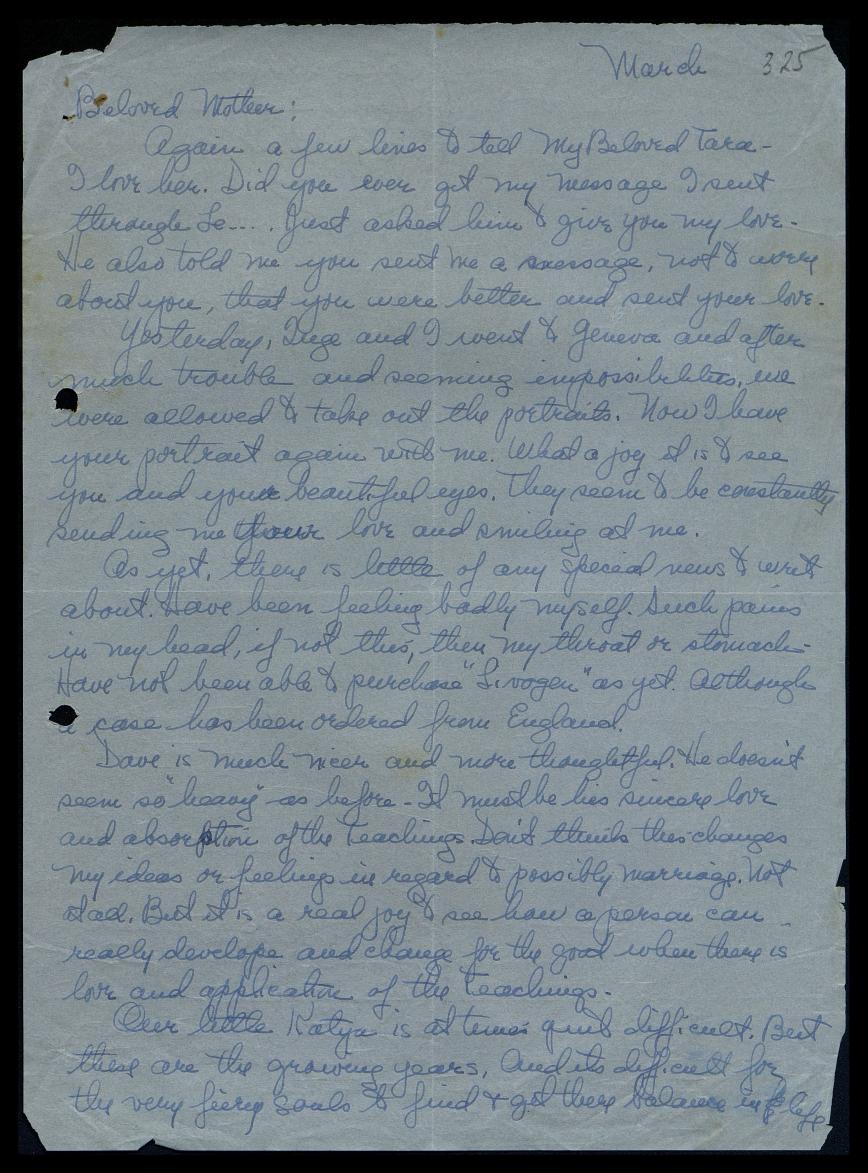 March 325
Beloved Mother:
Again a few lines to tell My Beloved Tara -
I love her. Did you ever get my message I sent
through Le.... Just asked him to give you my love.
He also told me you sent me a message, not to worry
about you, that you were better and sent your love.
Yesterday, Inge and I went to Geneva and after
much trouble and seeming impossibilities, we
were allowed to take out the portraits. Now I have
your portrait again with me. What a joy it is to see
you and your beautiful eyes. They seem to be constantly
sending me your love and smiling at me.
As yet, there is little of any special news to write
about. Have been feeling badly myself. Such pains
in my head, if not this, then my throat or stomach -
Have not been able to purchase "Livogen" as yet. Although
a case has been ordered from England.
Dave is much nicer and more thoughtful. He doesn't
seem so "heavy" as before - It must be his sincere love
and absorption of the Teachings. Don't think this changes
my ideas or feelings in regard to possibly marriage. Not
at all. But it is a real joy to see how a person can
really develope and change for the good when there is
love and application of the Teachings.
Our little Katya is at times quite difficult. But
these are the growing years, And its difficult for
the very fiery souls to find & get there balance in life